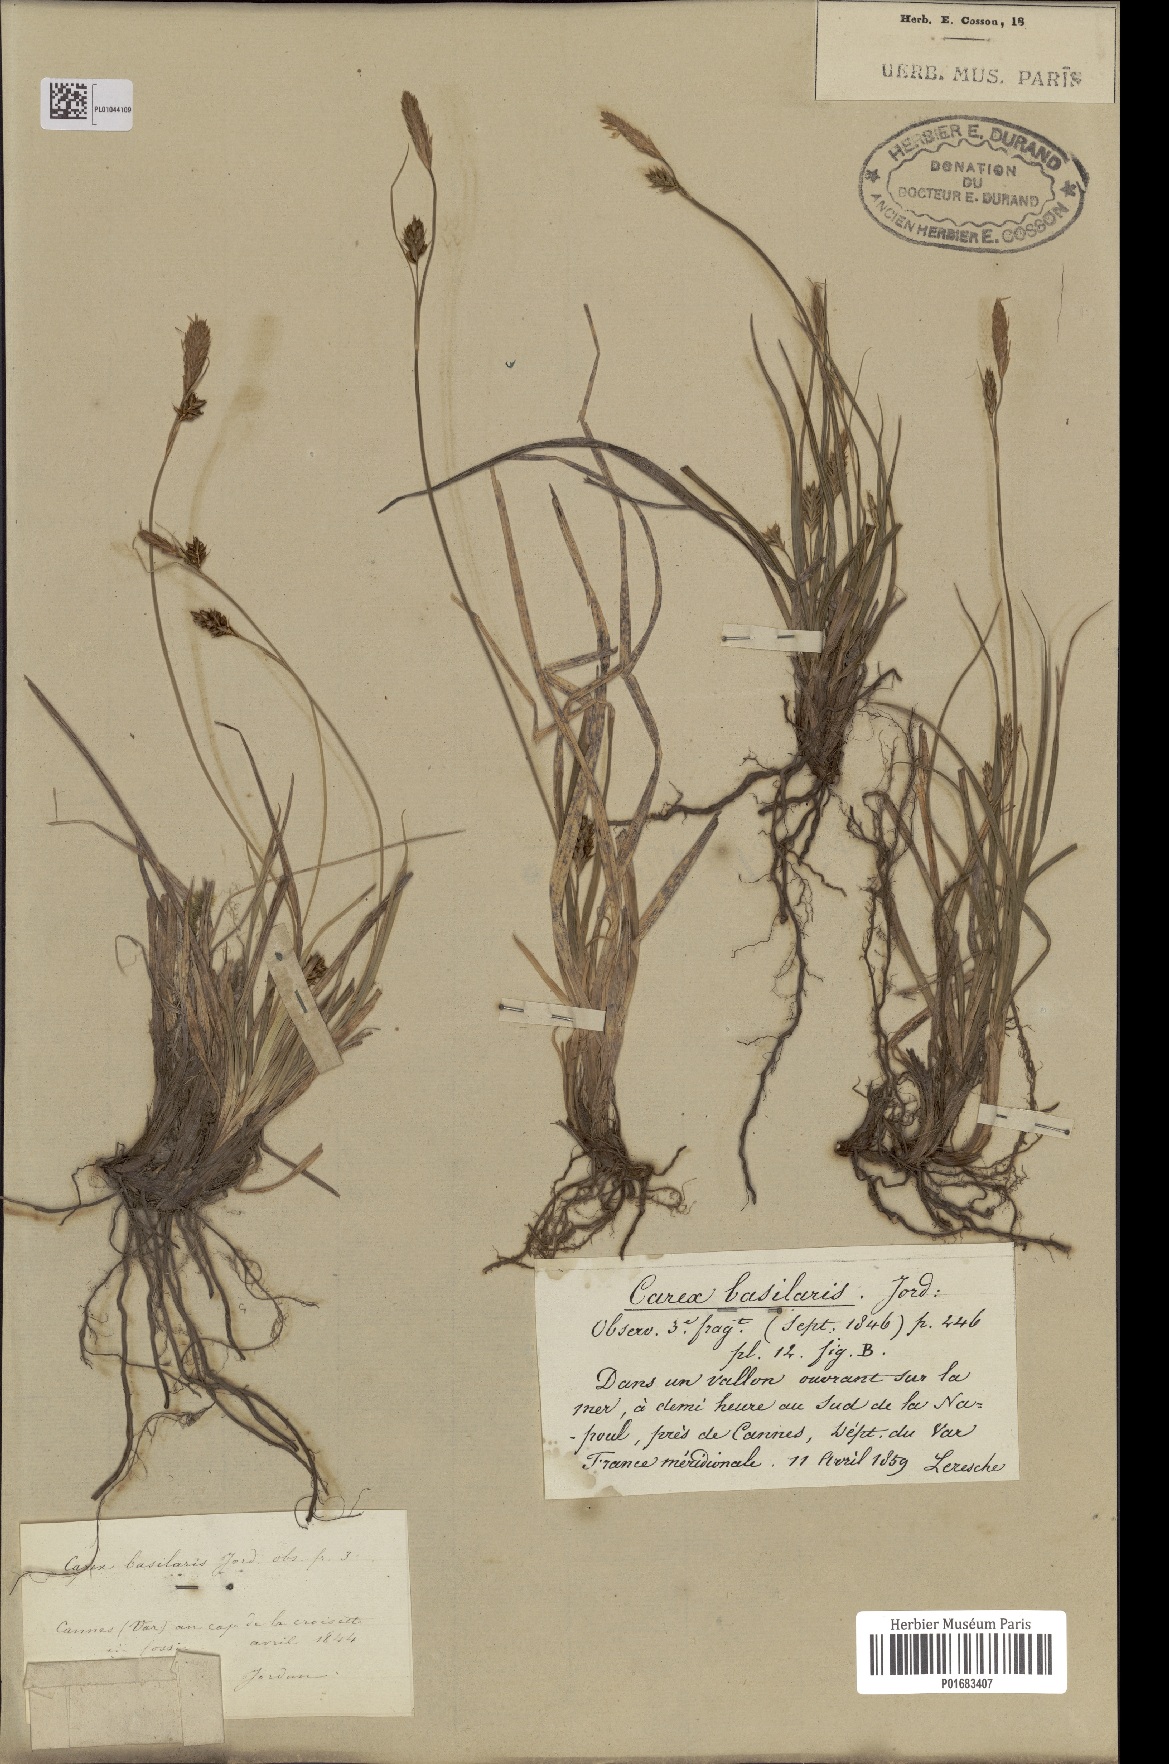 Herb. E. Cosson, 18
HERB. MUS. PARIS
PL01044109
HERBIER E. DURAND
DONATION
DU
DOCTEUR E. DURAND
ANCIEN HERBIER E. COSSON
Carex basilaris. Jord:
Observ. 3e. fragt. (Sept. 1846) p. 246
pl. 12. fig. B.
Dans un vallon ouvrant sur la
mer, à demi heure au Sud de la Na=
-poul, près de Cannes, Dépt. du Var
France méridionale. 11 Avril 1859 Leresche
Carex basilaris Jord. obs. p. 3
Cannes (Var) au cap de la croisette
avril 1844
Jordan
Herbier Muséum Paris
P01683407